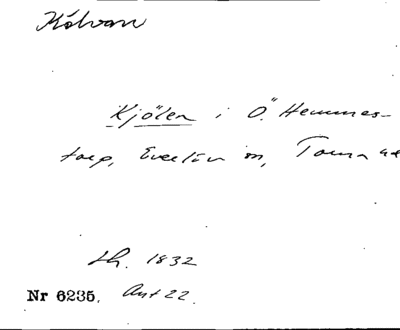 Kölvan
Kjölen i Ö. Hemmes-
torp, Everlöv sn, Torna hd
Lh. 1832
Nr 6235. Ant 22.